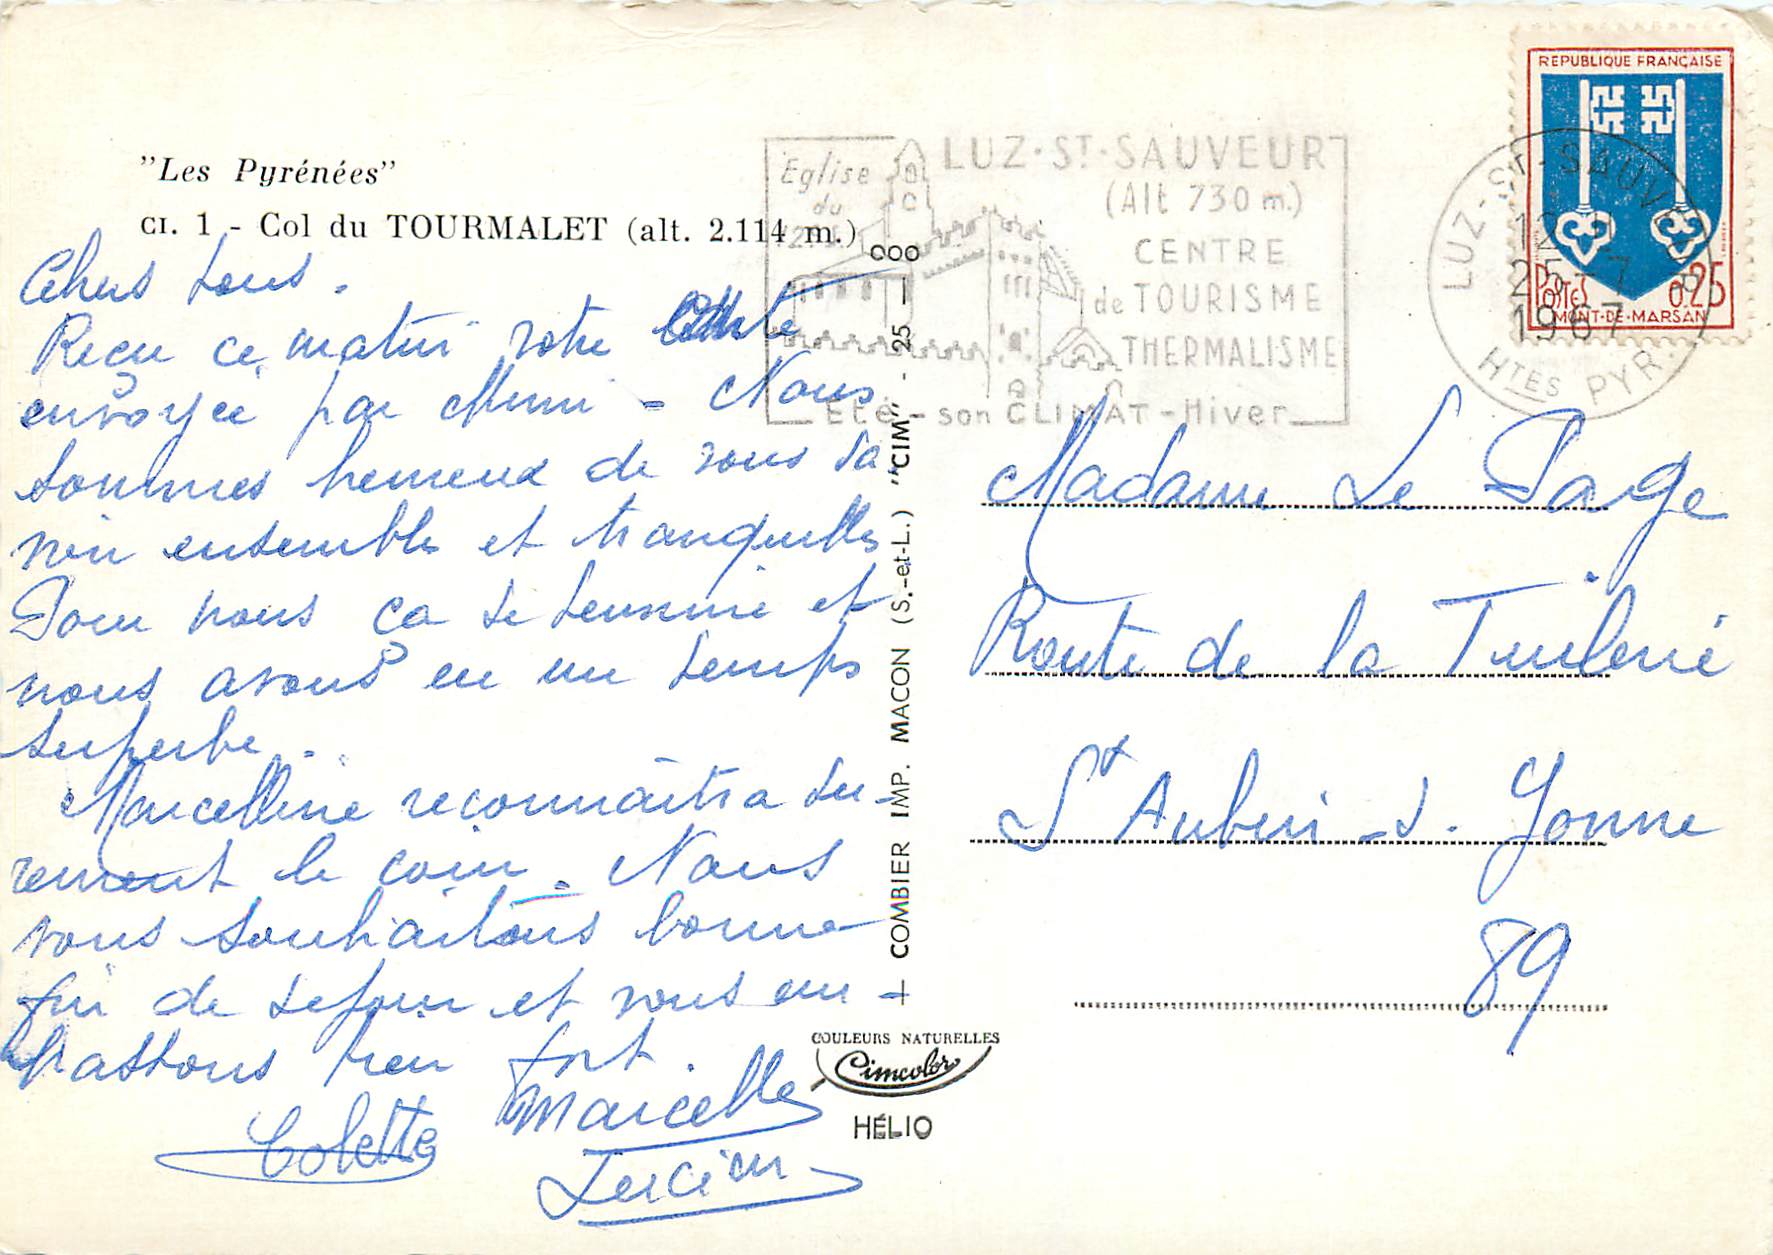 "Les Pyrénées"
CI. 1 - Col du TOURMALET (alt. 2.114 m.)
Chers tous.
Reçu ce matin votre carte
envoyée par Mimi - Nous
sommes heureux de vous sa
voir ensemble et tranquilles
Pour nous ça se termine et
nous avons eu un temps
superbe.
Marcelline reconnaîtra su-
rement le coin. Nous
vous souhaitons bonne
fin de séjour et vous em-
brassons bien fort.
Marcelle
Colette
Lucien
Eglise
du
12e S.
LUZ·ST·SAUVEUR
(Alt 730 m.)
CENTRE
de TOURISME
THERMALISME
Eté - son CLIMAT - Hiver
LUZ-ST-SAUVEUR
12 H
25 - 7
1967
HTES PYR.
REPUBLIQUE FRANÇAISE
POSTES
0,25
MONT-DE-MARSAN
COMBIER IMP. MACON (S.-et-L.) "CIM" - 25 —
COULEURS NATURELLES
Cimcolor
HÉLIO
Madame Le Page
Route de la Tuilerie
St Aubin-s. Yonne
89